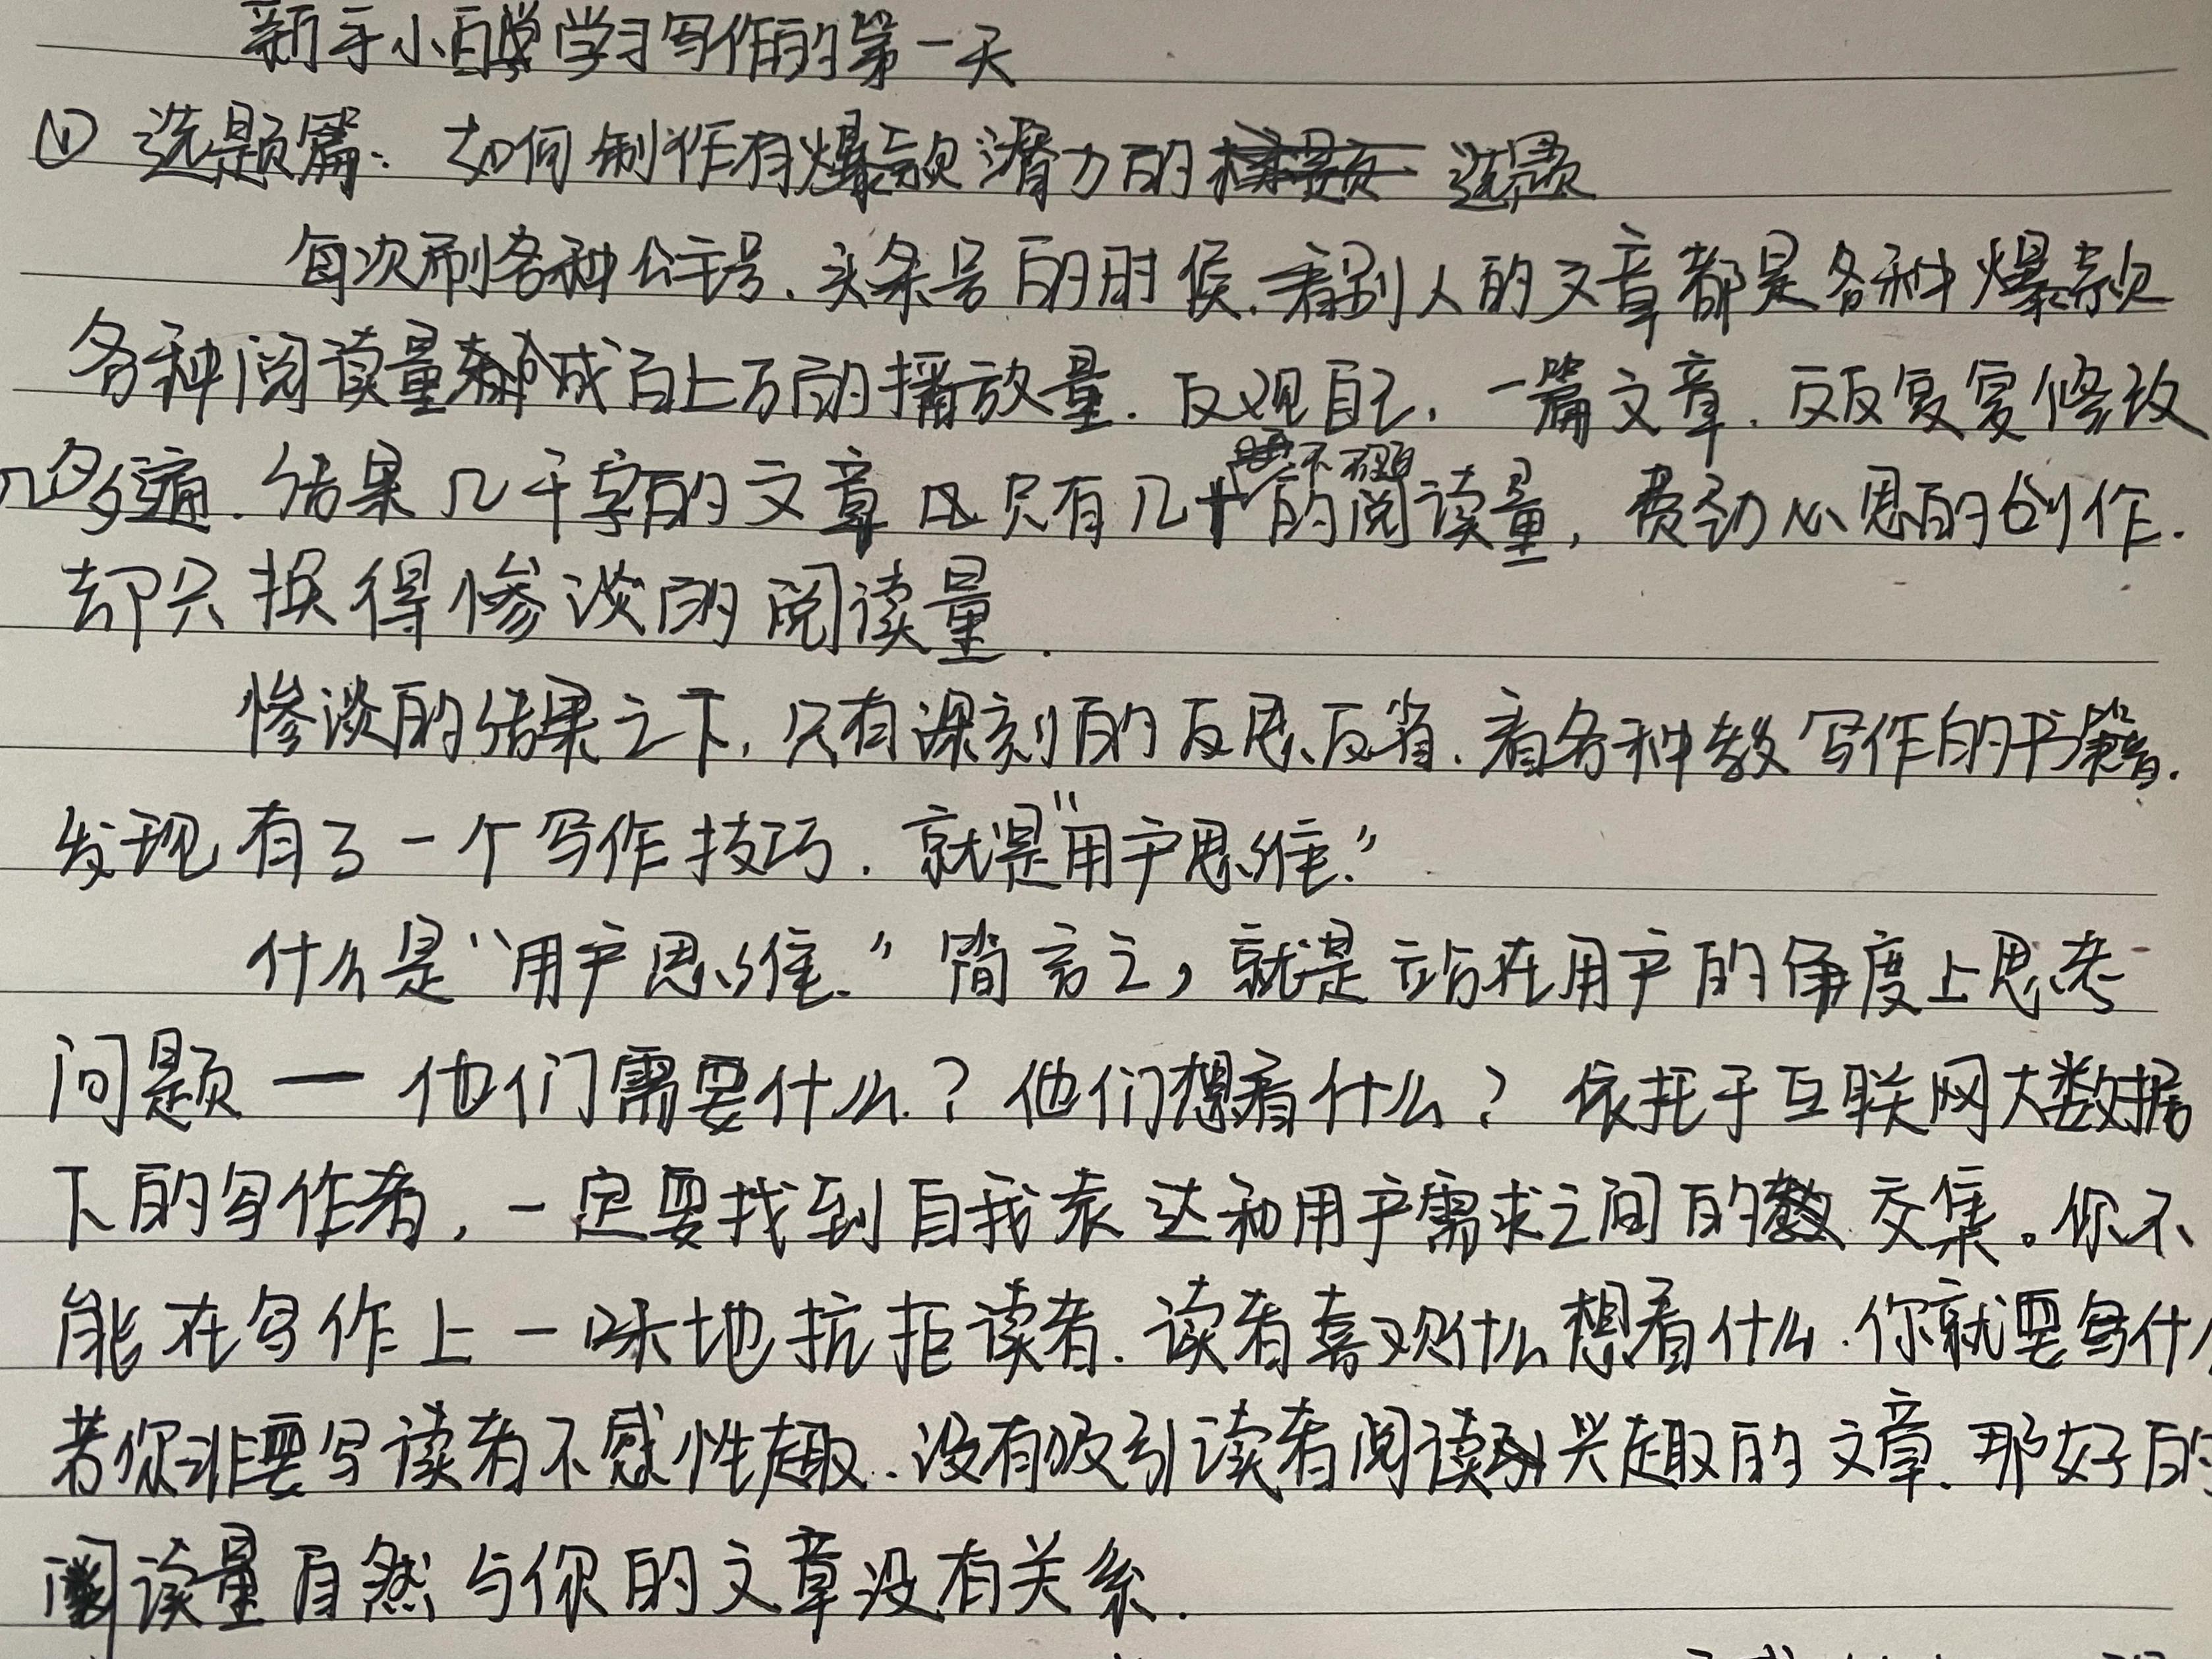 新手小白学习写作的第一天
① 选题篇：如何制作有爆款潜力的选题
每次刷各种公众号、头条号的时候，看别人的文章都是各种爆款
各种阅读量成百上万的播放量．反观自己，一篇文章．反反复复修改
几多遍．结果几千字的文章只有几十的阅读量，费劲心思的创作．
却只换得惨淡的阅读量．
惨淡的结果之下，只有深刻的反思、反省．看各种教写作的书籍．
发现有了一个写作技巧．就是“用户思维．”
什么是“用户思维．”简言之，就是站在用户的角度上思考
问题一他们需要什么？他们想看什么？依托于互联网大数据
下的写作者，一定要找到自我表达和用户需求之间的交集。你不
能在写作上一味地抗拒读者．读者喜欢什么想看什么．你就要写什么
若你非要写读者不感性趣．没有吸引读者阅读兴趣的文章．那好的
阅读量自然与你的文章没有关系．